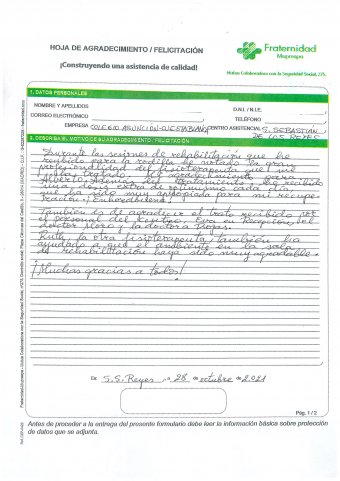 HOJA DE AGRADECIMIENTO / FELICITACIÓN
¡Construyendo una asistencia de calidad!
Fraternidad
Muprespa
Mutua Colaboradora con la Seguridad Social, 275
1. DATOS PERSONALES
NOMBRE Y APELLIDOS
D.N.I. / N.I.E.
CORREO ELECTRÓNICO
TELÉFONO
EMPRESA COLEGIO ASUNCIÓN-CUESTABLANCA CENTRO ASISTENCIAL S. SEBASTIÁN
DE LOS REYES
2. DESCRIBA EL MOTIVO DE SU AGRADECIMIENTO, FELICITACIÓN
Durante las sesiones de rehabilitación que he
recibido para la rodilla he notado la gran
profesionalidad del fisioterapeuta que me
ha tratado. Me agradec
Alberto. Además del tratamiento he recibido
una dosis extra de optimismo cada día
que ha sido muy apropiada para mi recupe-
ración; ¡Enhorabuena!
También es de agradecer el trato recibido por
el personal del centro: Eva en Recepción, el
doctor Moro y la doctora
Ruth, la otra fisioterapeuta, también ha
ayudado a que el ambiente en la sala
de rehabilitación haya sido muy agradable.
¡Muchas gracias a todos!
En S.S. Reyes, a 28 de octubre de 2021
Pág. 1 / 2
Antes de proceder a la entrega del presente formulario debe leer la información básica sobre protección
de datos que se adjunta.